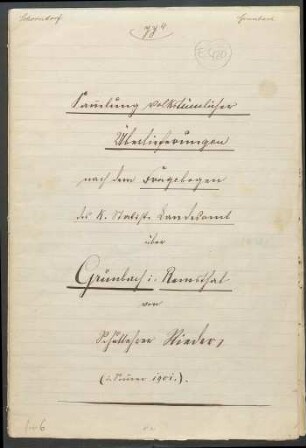 Schorndorf Grunbach
77a
Sammlung volkstümlicher
Überlieferungen
nach dem Fragebogen
des K. Statist. Landesamts
über
Grunbach i. Remsthal
von
Schullehrer Rieder,